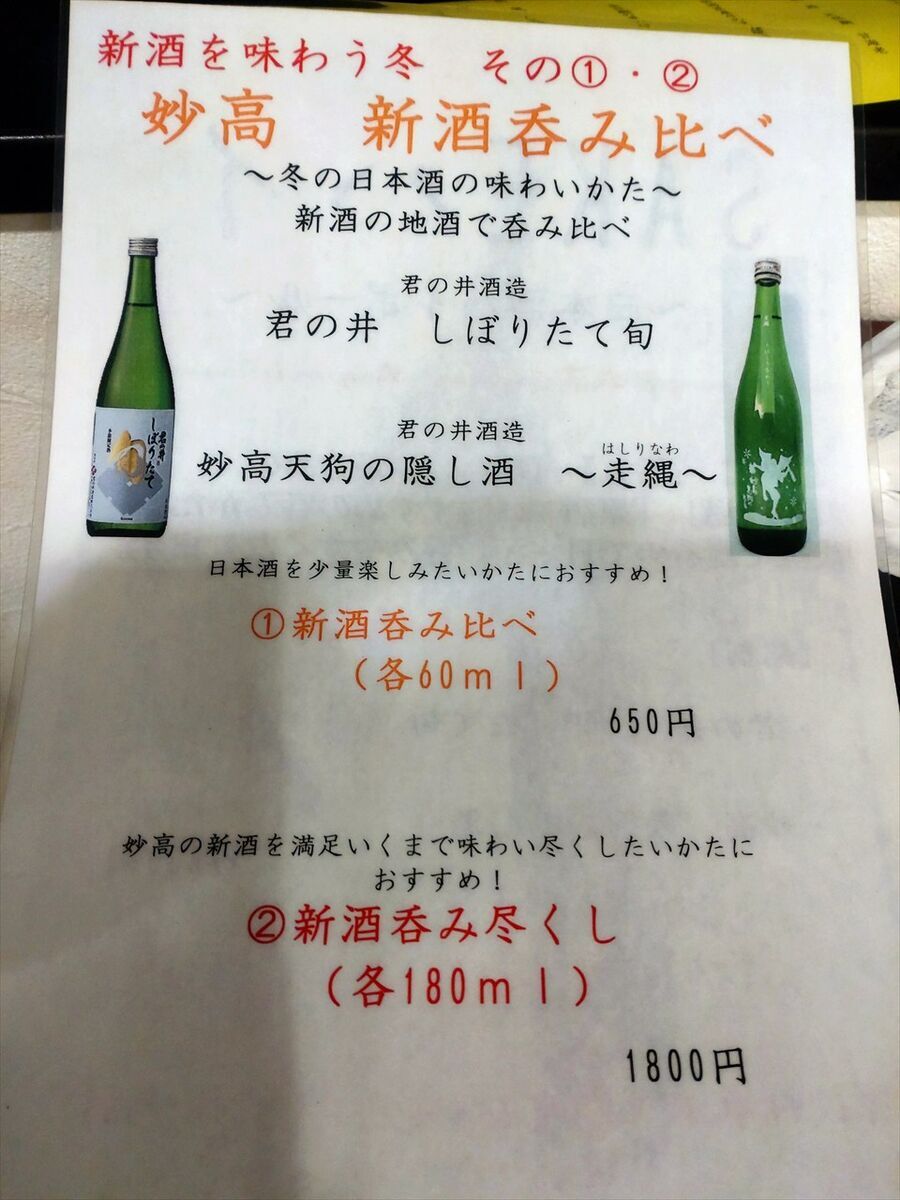 新酒を味わう冬　その①・②
妙高　新酒呑み比べ
～冬の日本酒の味わいかた～
新酒の地酒で呑み比べ
君の井酒造
君の井　しぼりたて旬
君の井酒造
はしりなわ
妙高天狗の隠し酒　～走縄～
君の井
しぼりたて
旬
日本酒を少量楽しみたいかたにおすすめ！
①新酒呑み比べ
（各60ｍｌ）
650円
妙高の新酒を満足いくまで味わい尽くしたいかたに
おすすめ！
②新酒呑み尽くし
（各180ｍｌ）
1800円